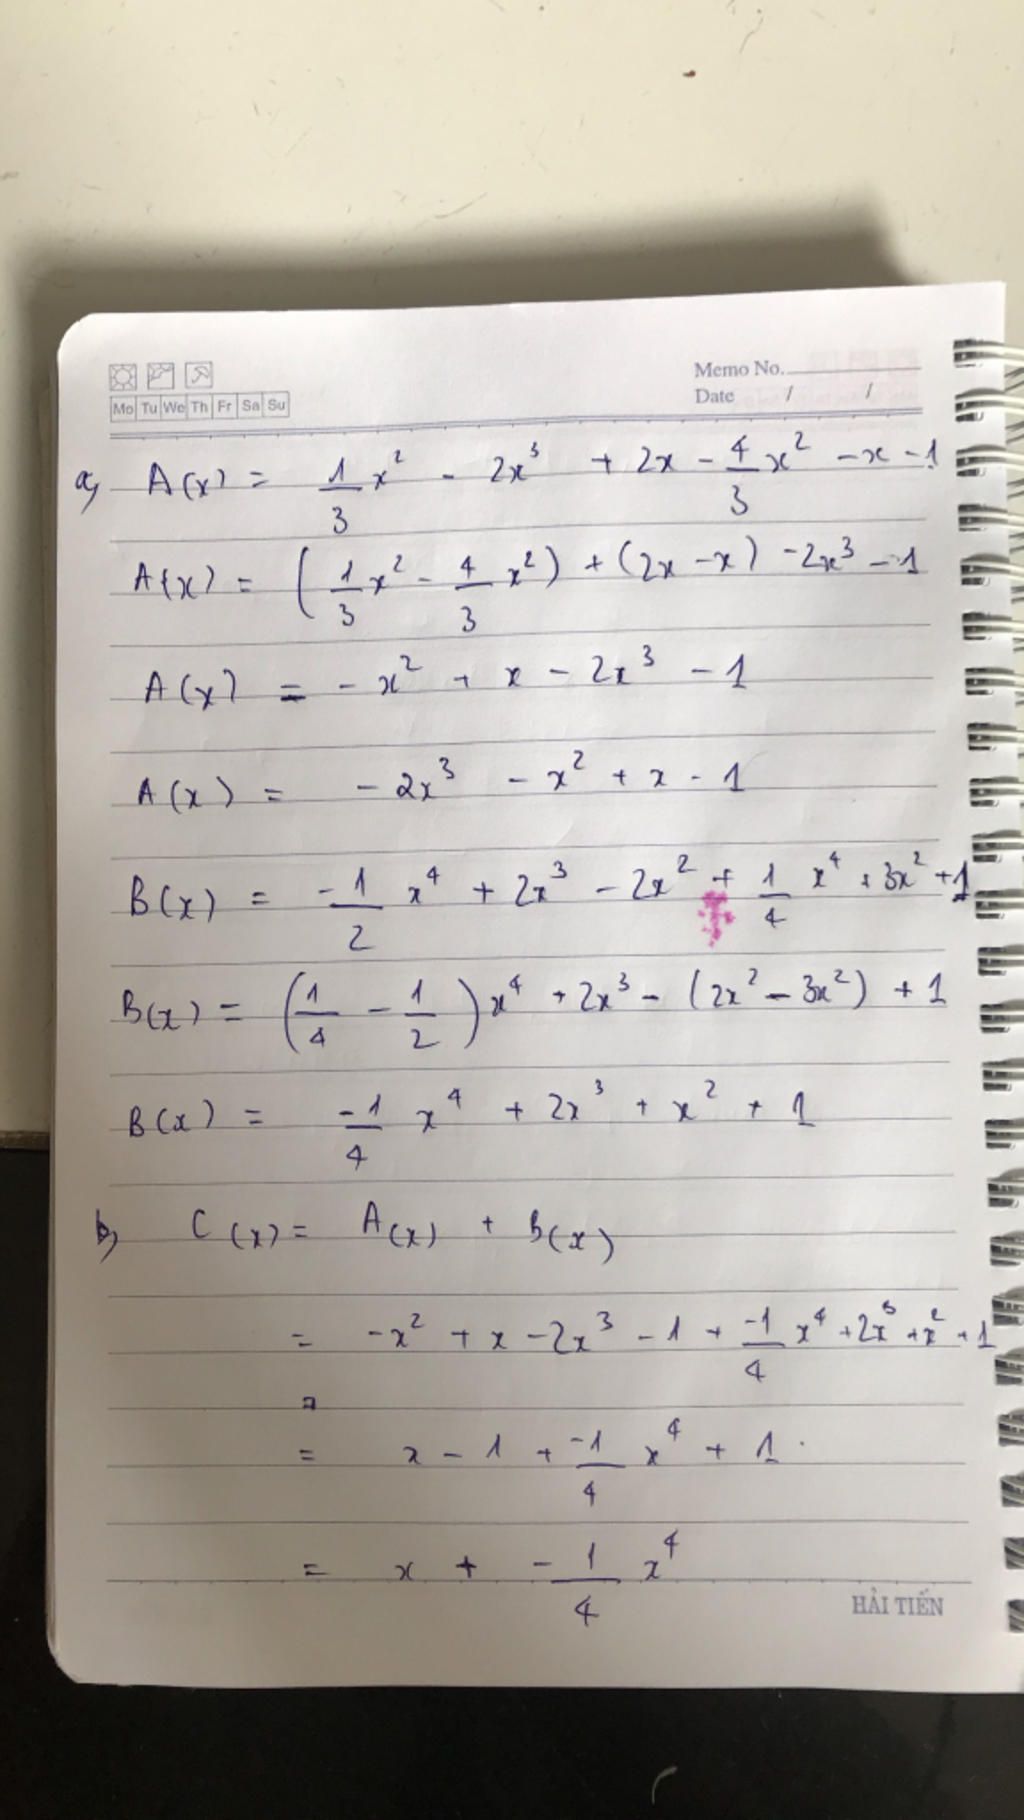 Memo No.
Mo Tu We Th Fr Sa Su
Date / /
a, A(x) = 1/3 x² - 2x³ + 2x - 4/3 x² - x - 1
A(x) = (1/3 x² - 4/3 x²) + (2x - x) - 2x³ - 1
A(x) = - x² + x - 2x³ - 1
A(x) = - 2x³ - x² + x - 1
B(x) = -1/2 x⁴ + 2x³ - 2x² + 1/4 x⁴ + 3x² + 1
B(x) = (1/4 - 1/2) x⁴ + 2x³ - (2x² - 3x²) + 1
B(x) = -1/4 x⁴ + 2x³ + x² + 1
b, C(x) = A(x) + B(x)
= -x² + x - 2x³ - 1 + -1/4 x⁴ + 2x³ + x² + 1
=
= x - 1 + -1/4 x⁴ + 1.
= x + -1/4 x⁴
HẢI TIẾN